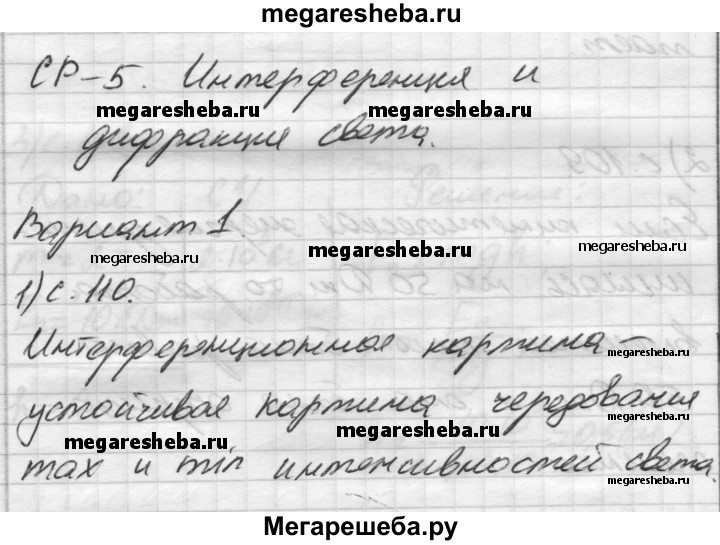 megaresheba.ru
СР-5. Интерференция и
megaresheba.ru megaresheba.ru
дифракция света.
Вариант 1.
megaresheba.ru megaresheba.ru megaresheba.ru
1) с. 110.
Интерференционная картина –
megaresheba.ru
megaresheba.ru
устойчивая картина чередования
megaresheba.ru
megaresheba.ru megaresheba.ru
max и min интенсивностей света.
megaresheba.ru
Мегарешеба.ру